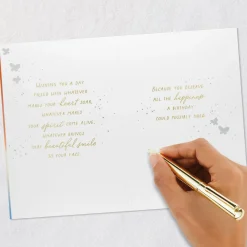 WISHING YOU A DAY
FILLED WITH WHATEVER
MAKES YOUR heart SOAR,
WHATEVER MAKES
YOUR spirit COME ALIVE,
WHATEVER BRINGS
THAT beautiful smile
TO YOUR FACE.
BECAUSE YOU DESERVE
ALL THE happiness
A BIRTHDAY
COULD POSSIBLY HOLD.